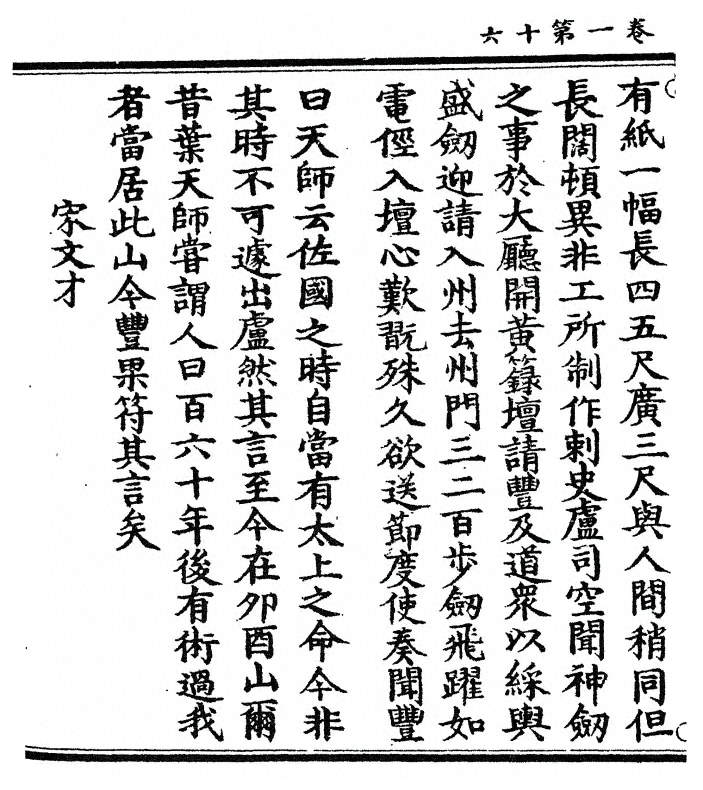 卷一第十六
有紙一幅長四五尺廣三尺與人間稍同但
長闊頓異非工所制作剌史盧司空聞神劒
之事於大廳開黄籙壇請豐及道衆以綵輿
盛劒迎請入州去州門三二百步劒飛躍如
電徑入壇心歎翫殊久欲送節度使奏聞豐
曰天師云佐國之時自當有太上之命今非
其時不可遽出盧然其言至今在卯酉山爾
昔葉天師嘗謂人曰百六十年後有術過我
者當居此山今豐果符其言矣
宋文才